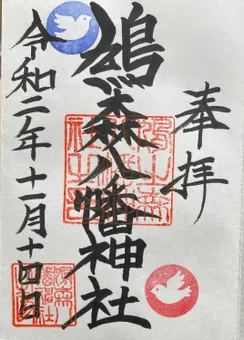 奉拝
鳩森八幡神社
令和二年十一月十四日